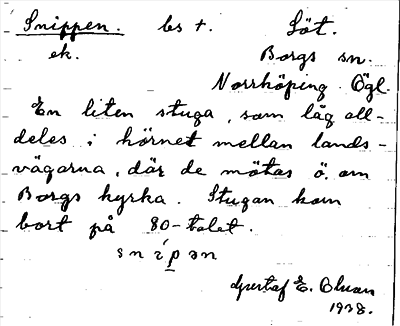 Snippen. bs +. Löt.
ek. Borgs sn.
Norrköping Ögl.
En liten stuga, som låg all-
deles i hörnet mellan lands-
vägarna, där de mötas ö. om
Borgs kyrka. Stugan kom
bort på 80-talet.
Gustaf E. Olsson
1938.